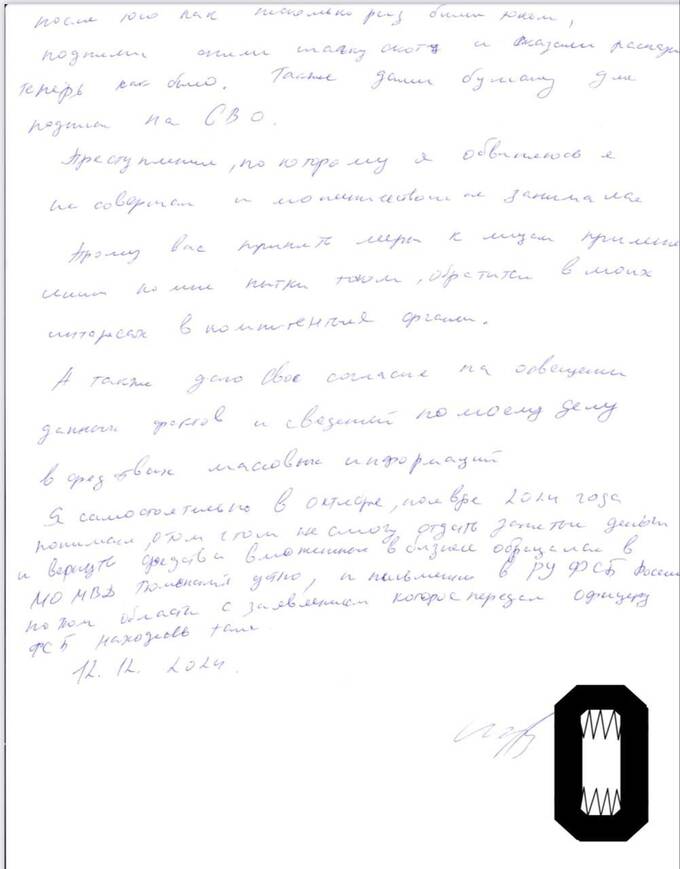 после чего как несколько раз били током,
подняли сняли шапку скотч и сказали
теперь как было. Также дали бумагу для
подписи на СВО.
Преступления, по которому я обвиняюсь я
не совершал и мошенничеством не занимался
Прошу вас принять меры к лицам
ко мне пытки током, обратится в моих
интересах в компитентные органы.
А также даю свое согласие на освещении
данных фактов и сведений по моему делу
в средствах массовых информаций
Я самостоятельно в октябре, ноябре 2024 года
понимая, о том что не смогу отдать занятые деньги
и вернуть средства вложенные в бизнес обращался в
МО МВД устно, и письменно в РУ ФСБ России
по области с заявлением которое передал офицеру
ФСБ находясь там
12.12. 2024.